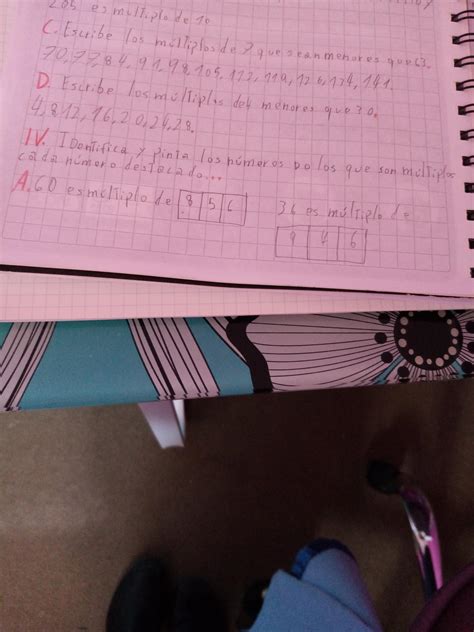 205 es multiplo de 10
C. Escribe los múltiplos de 7 que sean menores que 63.
70,77,84,91,98,105,112,119,126,134,141.
D. Escribe los múltiplos de 4 menores que 30.
4,8,12,16,20,24,28.
IV. Identifica y pinta los números por los que son múltiplos
cada número destacado...
A. 60 es múltiplo de 8 5 6 36 es múltiplo de
9 4 6